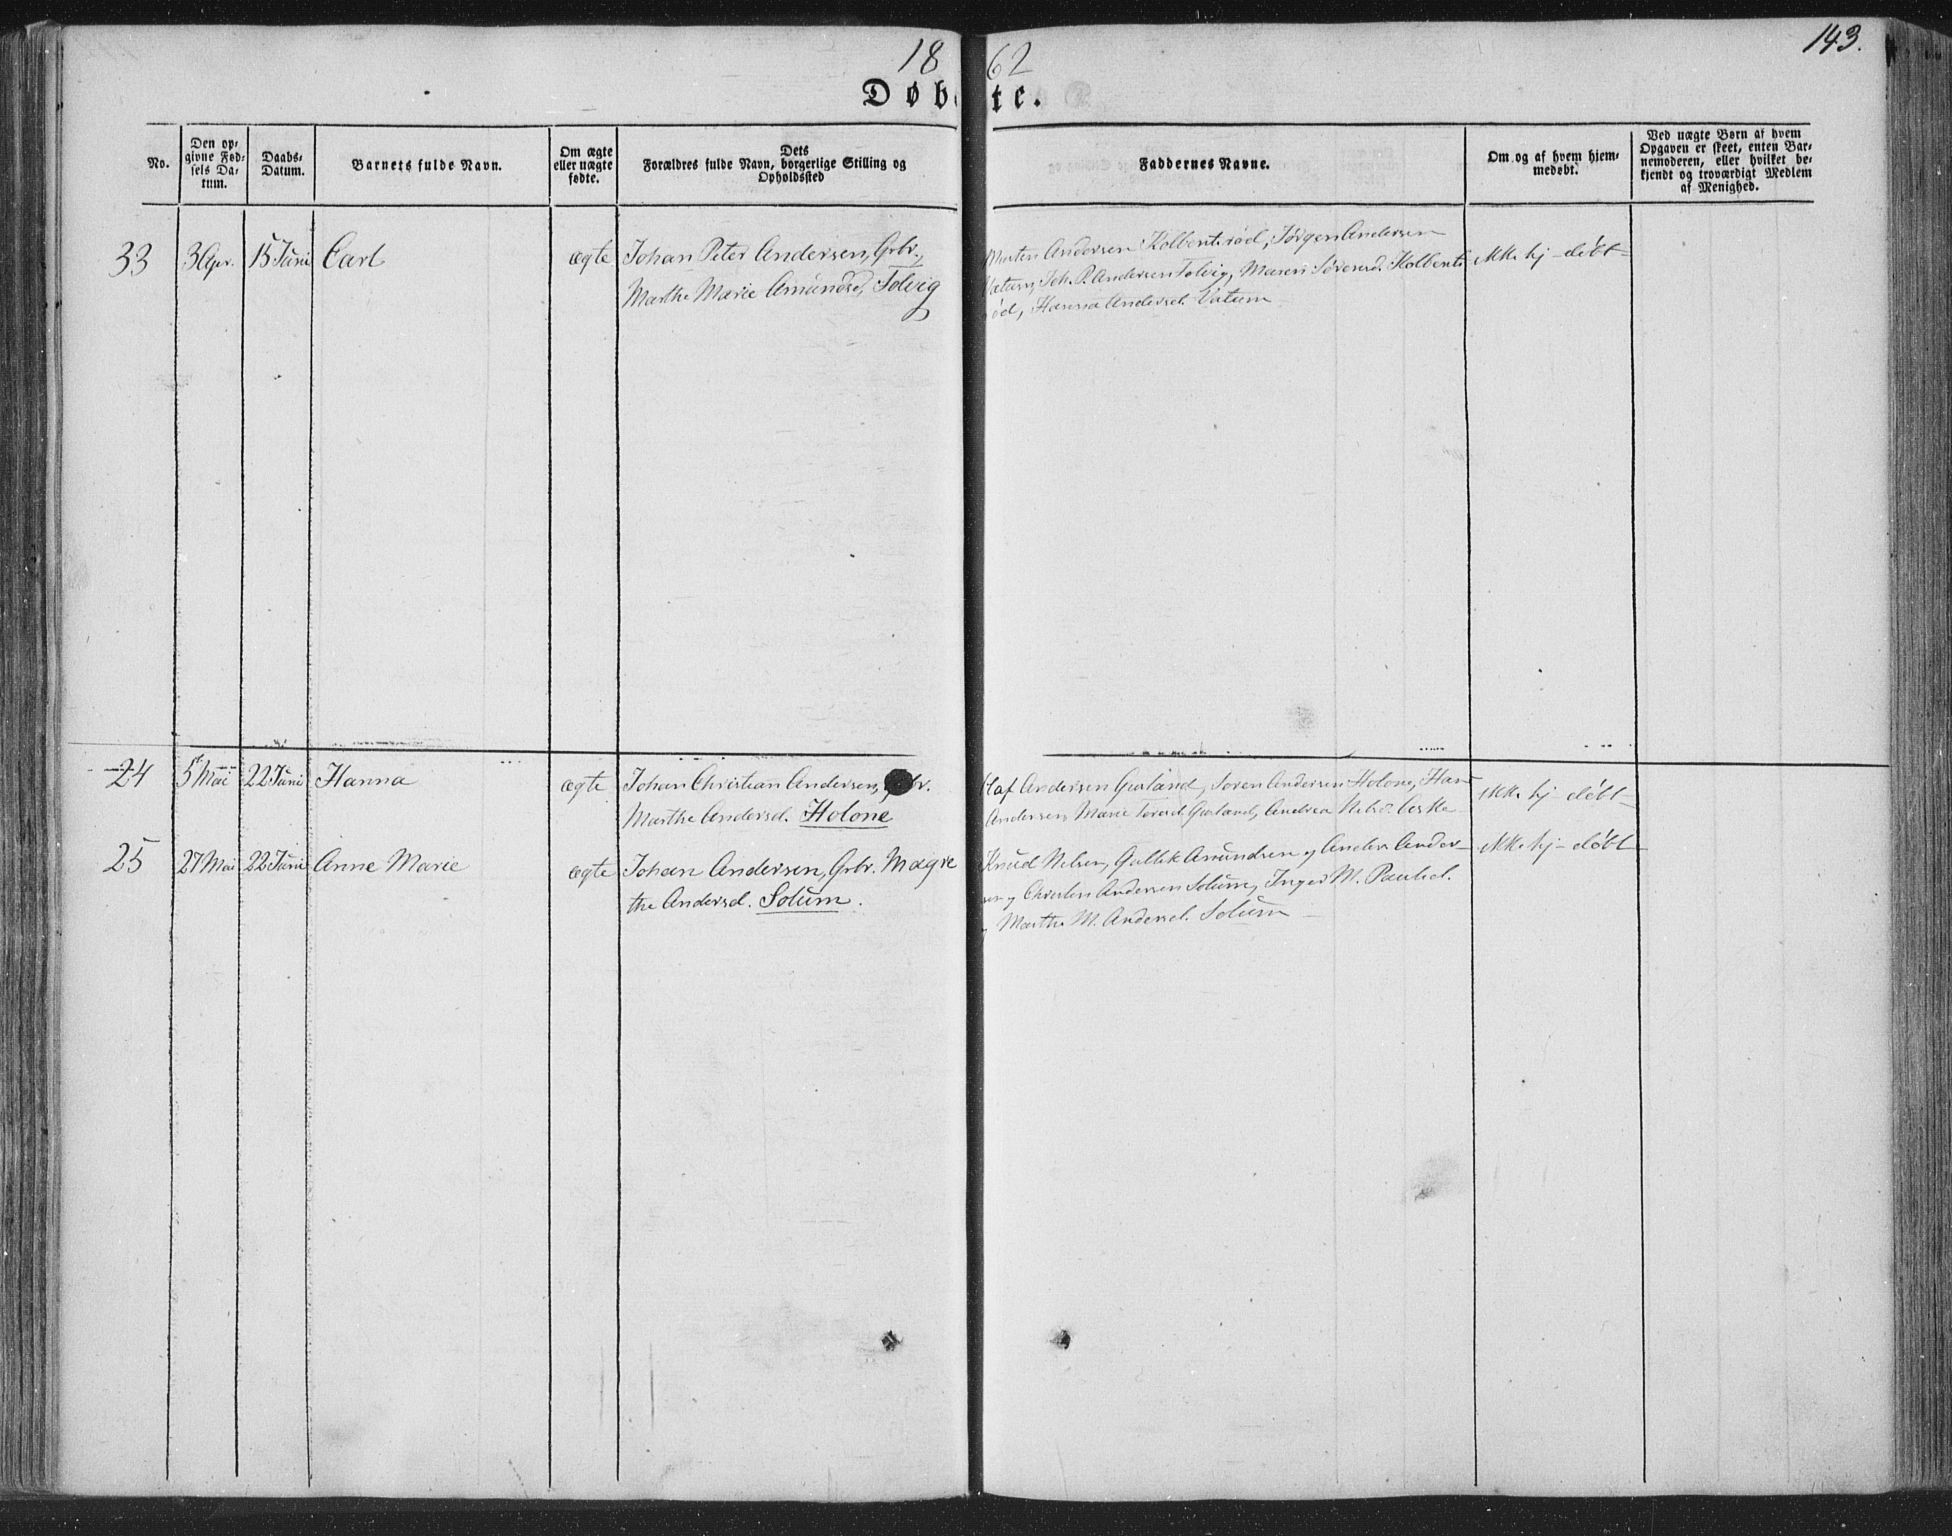 143.
18 62
Døbte.
No.
Den op-
givne Fød-
sels Da-
tum.
Daabs-
Datum.
Barnets fulde Navn.
Om ægte
eller uægte
fødte.
Dets
Forældres fulde Navn, borgerlige Stilling og
Opholdssted
Faddernes Navne.
Om og af hvem hjem-
medøbt.
Ved uægte Børn af hvem
Opgaven er skeet, enten Bar-
nemoderen, eller hvilket be-
kjendt og troværdigt Medlem
af Menighed.
33
3 Apr.
15 Juni
Carl
ægte
Johan Peter Andersen, Grbr.,
Marthe Marie Amundsd, Tolvig
Morten Andersen Kolbentsrød, Jørgen Andersen
Vatum, Joh. P. Andersen Tolvig, Maren Sørensd. Kolbents
rød, Hanna Andersd. Vatum
ikke hj-døbt-
24
5 Mai
22 Juni
Hanna
ægte
Johan Christian Andersen, Grbr.
Marthe Andersd. Holone
Olaf Andersen Gurland, Soren Andersen Holone, Han
Andersen, Marie Andrea
ikke hj-døbt-
25
27 Mai
22 Juni
Anne Marie
ægte
Johan Andersen, Grbr. Magre
the Andersd. Solum.
Knud Nelsen, Gullik Amundsen og Anders Ander-
sen og Christen Andersen Solum, Inger M. Paulsd.
og Marthe M. Andersd. Solum-
ikke hj-døbt